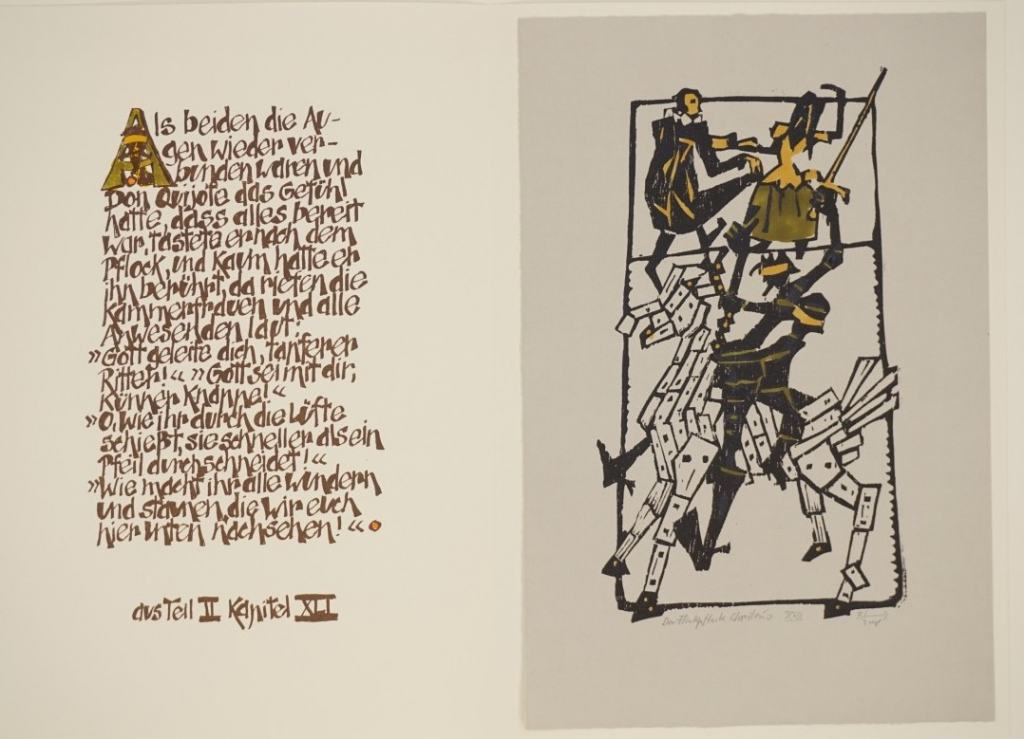 Als beiden die Au-
gen wieder ver-
bunden waren und
Don Quijote das Gefühl
hatte, dass alles bereit
war, tastete er nach dem
Pflock, und kaum hatte er
ihn berührt, da riefen die
Kammerfrauen und alle
Anwesenden laut:
»Gott geleite dich, tapferer
Ritter!« »Gott sei mit dir,
kühner Knappe!«
»O, wie ihr durch die Lüfte
schießt, sie schneller als ein
Pfeil durchschneidet!«
»Wie macht ihr alle wundern
und staunen, die wir euch
hier unten nachsehen!«
aus Teil II Kapitel XLI